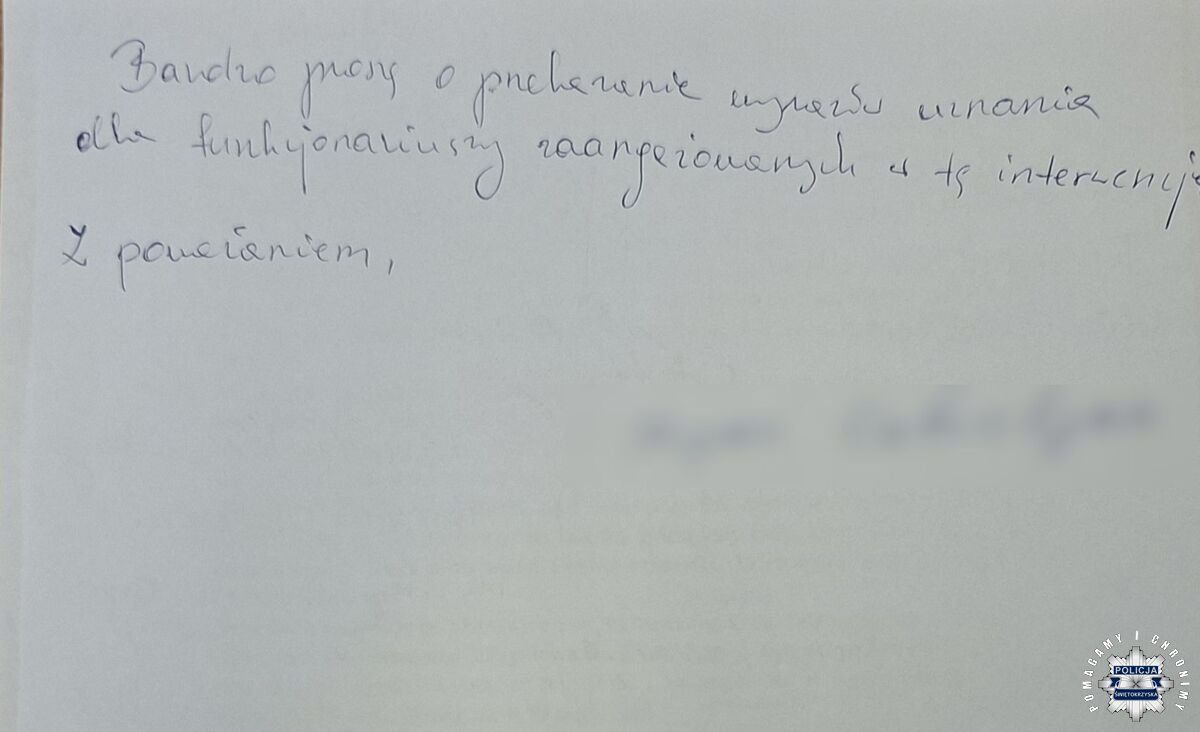 Bardzo proszę o przekazanie wyrazów uznania
dla funkcjonariuszy zaangażowanych w tę interwencję
Z poważaniem,
POMAGAMY I CHRONIMY
POLICJA
ŚWIĘTOKRZYSKA